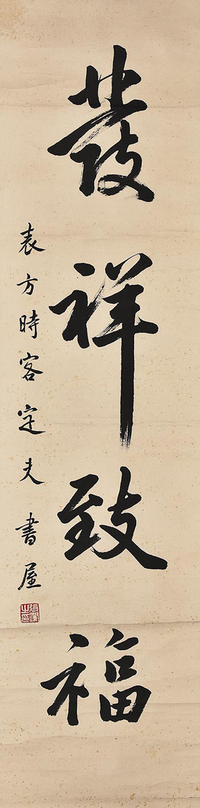 發祥致福
表方時客定夫書屋